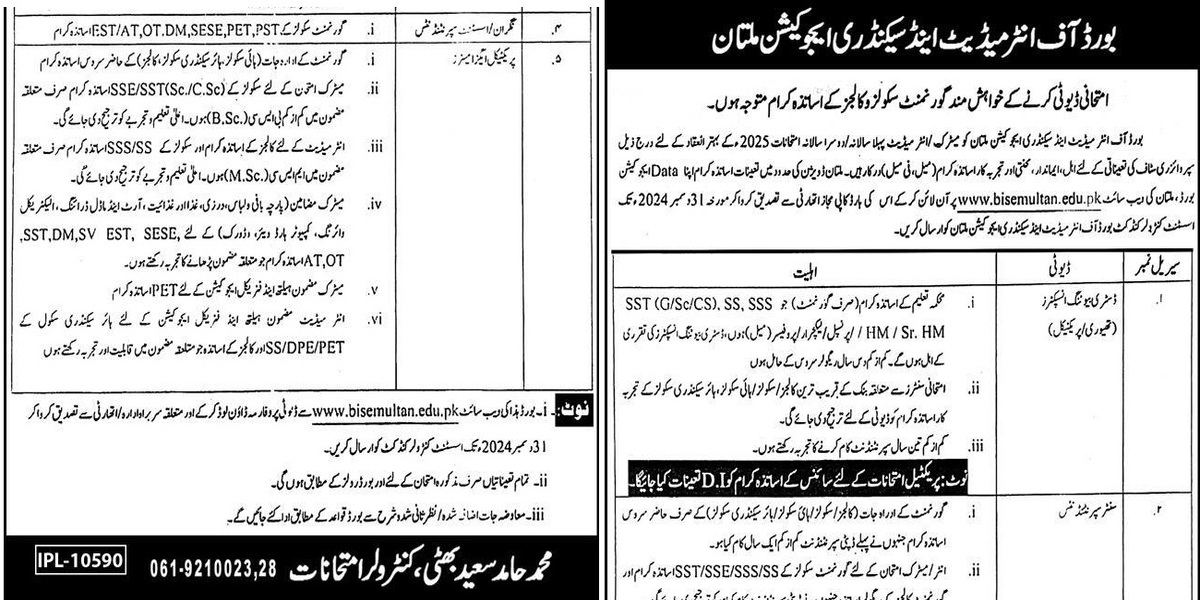 بورڈ آف انٹرمیڈیٹ اینڈ سیکنڈری ایجوکیشن ملتان
امتحانی ڈیوٹی کرنے کے خواہش مند گورنمنٹ سکولز و کالجز کے اساتذہ کرام متوجہ ہوں۔
بورڈ آف انٹرمیڈیٹ اینڈ سیکنڈری ایجوکیشن ملتان کو میٹرک/انٹرمیڈیٹ پہلا سالانہ/دوسرا سالانہ امتحانات 2025ء کے بہتر انعقاد کے لئے درج ذیل
سپروائزری سٹاف کی تعیناتی کے لئے اہل، ایماندار، محنتی اور تجربہ کار اساتذہ کرام (میل، فی میل) درکار ہیں۔ ملتان ڈویژن کی حدود میں تعینات اساتذہ کرام اپنا Data ایجوکیشن
بورڈ، ملتان کی ویب سائٹ www.bisemultan.edu.pk پر آن لائن کر کے اس کی ہارڈ کاپی مجاز اتھارٹی سے تصدیق کروا کر مورخہ 31 دسمبر 2024ء تک
اسسٹنٹ کنٹرولر کنڈکٹ بورڈ آف انٹرمیڈیٹ اینڈ سیکنڈری ایجوکیشن ملتان کو ارسال کریں۔
سیریل نمبر ڈیوٹی اہلیت
۱. ڈسٹری بیوٹنگ انسپکٹرز i. محکمہ تعلیم کے اساتذہ کرام (صرف گورنمنٹ) جو SST (G/Sc/CS), SS, SSS
(تھیوری/پریکٹیکل) HM / Sr. HM / پرنسپل/لیکچرار/پروفیسر (میل) ہوں، ڈسٹری بیوٹنگ انسپکٹرز کی تقرری
کے اہل ہوں گے۔ کم از کم دس سال ریگولر سروس کے حامل ہوں
ii. امتحانی سنٹرز سے متعلقہ بنک کے قریب ترین کالجز/سکولز/ہائی سکولز، ہائر سیکنڈری سکولز کے تجربہ
کار اساتذہ کرام کو ڈیوٹی کے لئے ترجیح دی جائے گی۔
iii. کم از کم تین سال سپرنٹنڈنٹ کام کرنے کا تجربہ رکھتے ہوں۔
نوٹ: پریکٹیکل امتحانات کے لئے سائنس کے اساتذہ کرام کو D.I تعینات کیا جائیگا۔
۲. سنٹر سپرنٹنڈنٹ i. گورنمنٹ کے ادارہ جات (کالجز/سکولز/ہائی سکولز/ہائر سیکنڈری سکولز) کے صرف حاضر سروس
اساتذہ کرام جنہوں نے پہلے ڈپٹی سپرنٹنڈنٹ کم از کم ایک سال کام کیا ہو۔
ii. انٹر/میٹرک امتحان کے لئے گورنمنٹ سکولز کے SST/SSE/SSS/SS اساتذہ کرام اور
۴. نگران/اسسٹنٹ سپرنٹنڈنٹس i. گورنمنٹ سکولز کے EST/AT,OT.DM,SESE,PET,PST اساتذہ کرام
۵. پریکٹیکل ایگزامینرز i. گورنمنٹ کے ادارہ جات (ہائی سکولز، ہائر سیکنڈری سکولز، کالجز) کے حاضر سروس اساتذہ کرام
ii. میٹرک امتحان کے لئے سکولز کے SSE/SST(Sc./C.Sc) اساتذہ کرام صرف متعلقہ
مضمون میں کم از کم بی ایس سی (B.Sc.) ہوں۔ اعلیٰ تعلیم و تجربے کو ترجیح دی جائے گی۔
iii. انٹرمیڈیٹ کے لئے کالجز کے اساتذہ کرام اور سکولز کے SSS/SS اساتذہ کرام صرف متعلقہ
مضمون میں ایم ایس سی (M.Sc.) ہوں۔ اعلیٰ تعلیم و تجربے کو ترجیح دی جائے گی۔
iv. میٹرک مضامین (پارچہ بانی و لباس، درزی، غذا اور غذائیت، آرٹ اینڈ ماڈل ڈرائنگ، الیکٹریکل
وائرنگ، کمپیوٹر ہارڈ ویئر، وڈ ورک) کے لئے SST,DM,SV EST, SESE,
AT,OT اساتذہ کرام جو متعلقہ مضمون پڑھانے کا تجربہ رکھتے ہوں۔
v. میٹرک مضمون ہیلتھ اینڈ فزیکل ایجوکیشن کے لئے PET اساتذہ کرام
vi. انٹرمیڈیٹ مضمون ہیلتھ اینڈ فزیکل ایجوکیشن کے لئے ہائر سیکنڈری سکول کے
SS/DPE/PET اور کالجز کے اساتذہ جو متعلقہ مضمون میں قابلیت اور تجربہ رکھتے ہوں
نوٹ: i- بورڈ ہذا کی ویب سائٹ www.bisemultan.edu.pk سے ڈیوٹی پروفارمہ ڈاؤن لوڈ کر کے اور متعلقہ سربراہ ادارہ/اتھارٹی سے تصدیق کروا کر
31 دسمبر 2024ء تک اسسٹنٹ کنٹرولر کنڈکٹ کو ارسال کریں۔
ii- تمام تعیناتیاں صرف مذکورہ امتحان کے لئے اور بورڈ رولز کے مطابق ہوں گی۔
iii- معاوضہ جات اضافہ شدہ/نظر ثانی شدہ شرح سے بورڈ قواعد کے مطابق ادا کئے جائیں گے۔
محمد حامد سعید بھٹی، کنٹرولر امتحانات 061-9210023,28
IPL-10590